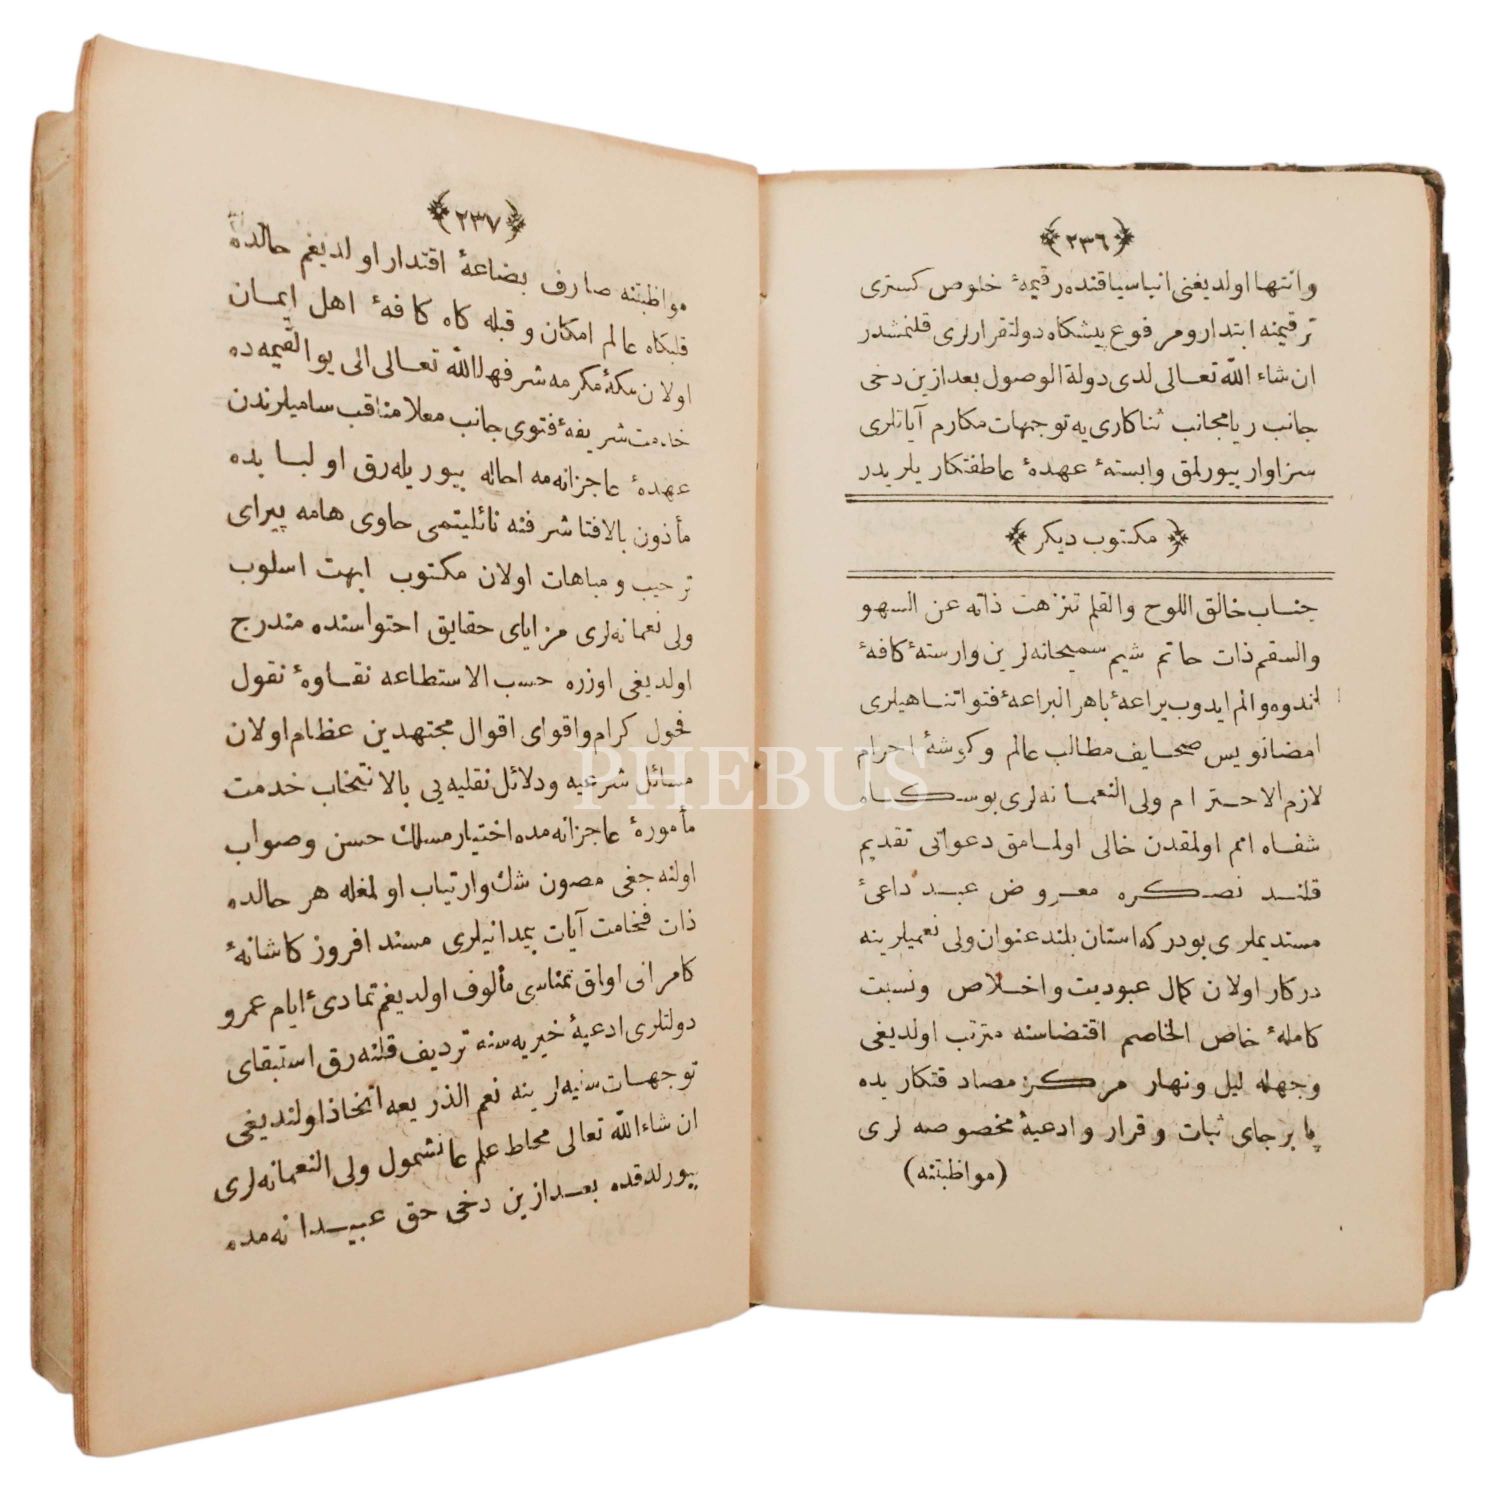 ﴿٢٣٦﴾
وانتها اولديغنى انباسياقنده رقيمهٔ خلوص كسترى
ترقيمنه ابتدار ومرفوع پيشكاه دولتقرارلرى قلنمشدر
ان شاء الله تعالى لدى دولة الوصول بعدازين دخى
جانب ريامجانب ثناكارى يه توجهات مكارم آياتلرى
سزاوار بيورلمق وابستهٔ عهدهٔ عاطفتكاريلريدر
﴿ مكتوب ديكر ﴾
جناب خالق اللوح والقلم تنزهت ذاته عن السهو
والسقم ذات حاتم شيم سميحانه لرين وارستهٔ كافهٔ
اندوه والم ايدوب يراعهٔ باهر البراعهٔ فتواتناهيلرى
امضانويس صحايف مطالب عالم وكوشهٔ احرام
لازم الاحترام ولى النعمانه لرى بوسكاه
شفاه امم اولمقدن خالى اولمامق دعواتى تقديم
قلنـد نصكره معروض عبد داعىٔ
مستديملرى بودركه استان بلند عنوان ولى نعميلرينه
دركار اولان كمال عبوديت واخلاص ونسبت
كاملهٔ خاص الخاصم اقتضاسنه مترتب اولديغى
وجهله ليل ونهار مركز مصادقتكاريده
پا برجاى ثبات وقرار وادعيهٔ مخصوصه لرى
(مواظبتنه)
﴿٢٣٧﴾
مواظبتنه صارف بضاعهٔ اقتدار اولديغم حالده
قلبكاه عالم امكان وقبله كاه كافهٔ اهل ايمان
اولان مكهٔ مكرمه شرفها الله تعالى الى يوالقيمه ده
خدمت شريفهٔ فتوى جانب معلامناقب ساميلرندن
عهدهٔ عاجزانه مه احاله بيوريله رق اولبابده
مأذون بالافتا شرفنه نائليتمى حاوى هامه پيراى
ترحيب ومباهات اولان مكتوب ابهت اسلوب
ولى نعمانه لرى مزاياى حقايق احتواسنده مندرج
اولديغى اوزره حسب الاستطاعه نقاوهٔ نقول
فحول كرام واقواى اقوال مجتهدين عظام اولان
مسائل شرعيه ودلائل نقليه يى بالانتخاب خدمت
مأمورهٔ عاجزانه مده اختيار مسلك حسن وصواب
اولنه جغى مصون شك وارتياب اولمغله هر حالده
ذات فخامت آيات بيمدانيلرى مسند افروز كاشانهٔ
كامرانى اواق تمناسى مألوف اولديغم تمادىٔ ايام عمرو
دولتلرى ادعيهٔ خيريه سنه ترديف قلنه رق استبقاى
توجهات سنيه لرينه نعم الذريعه اتخاذ اولنديغى
ان شاء الله تعالى محاط علم عالمشمول ولى النعمانه لرى
بيورلدقده بعدازين دخى حق عبيدانه مده